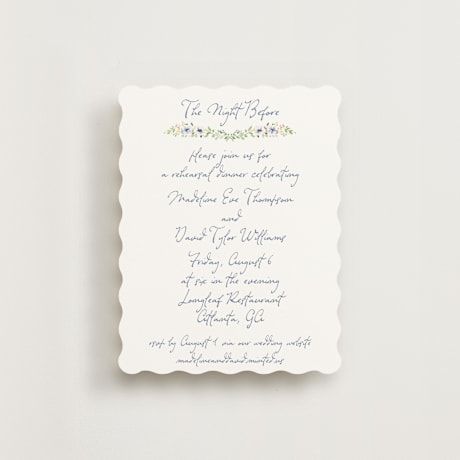 The Night Before
Please join us for
a rehearsal dinner celebrating
Madeline Eve Thompson
and
David Tylor Williams
Friday, August 6
at six in the evening
Longleaf Restaurant
Atlanta, GA
rsvp by August 1 via our wedding website
madelineanddavid.minted.us